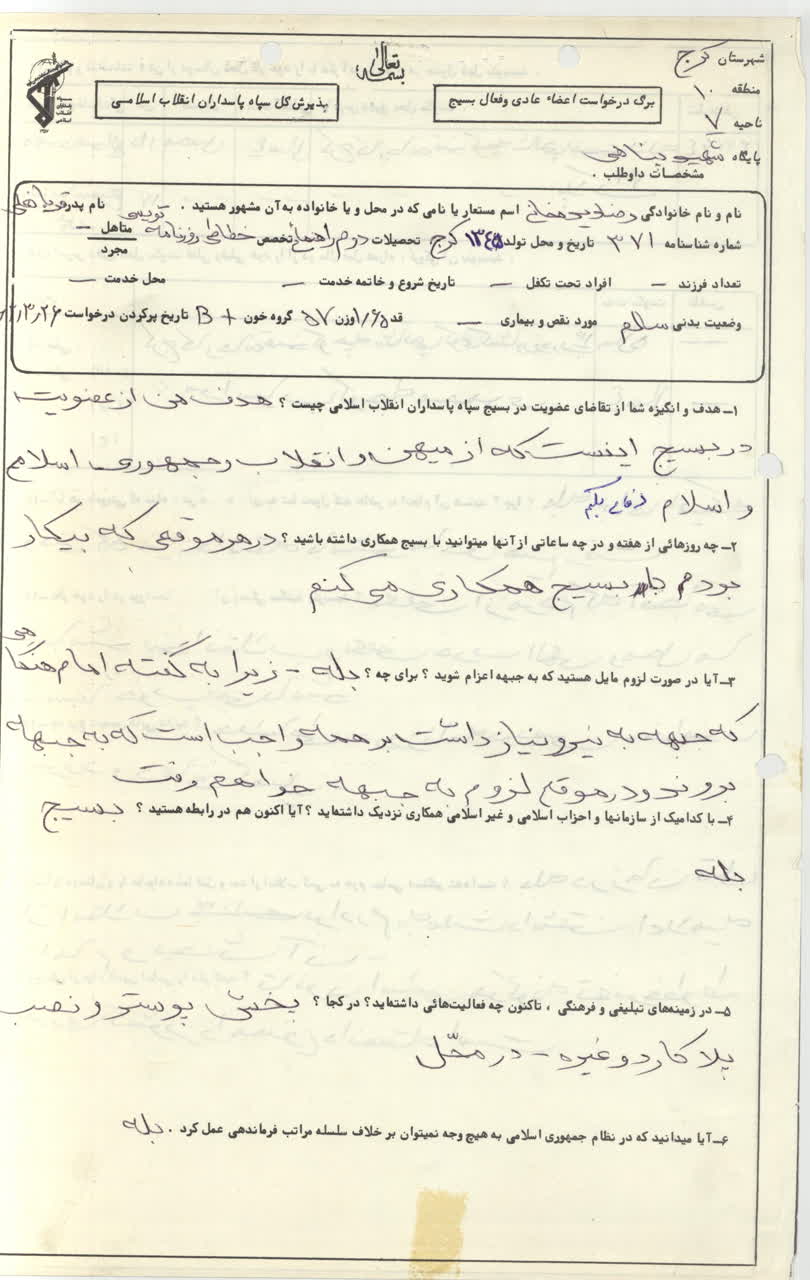 بسمه تعالی
شهرستان کرج
منطقه ۱۰
ناحیه ۷
پایگاه شهید
برگ درخواست اعضاء عادی وفعال بسیج
پذیرش کل سپاه پاسداران انقلاب اسلامی
سپاه پاسداران انقلاب اسلامی
مشخصات داوطلب .
نام و نام خانوادگی اسم مستعار یا نامی که در محل و یا خانواده به‌آن مشهور هستید . نام پدر قربانعلی
شماره شناسنامه ۳۷۱ تاریخ و محل تولد ۱۳۴۵ کرج تحصیلات دوم راهنمائی تخصص خطاطی روزنامه نویسی متاهل — مجرد
تعداد فرزند — افراد تحت تکفل — تاریخ شروع و خاتمه خدمت — محل خدمت —
وضعیت بدنی سالم مورد نقص و بیماری — قد ۱/۶۵ وزن ۵۷ گروه خون B+ تاریخ پرکردن درخواست ۲/۳/۲۶
۱ــ هدف و انگیزه شما از تقاضای عضویت در بسیج سپاه پاسداران انقلاب اسلامی چیست ؟ هدف من از عضویت
در بسیج اینست که از میهن و انقلاب و جمهوری اسلامی
و اسلام دفاع بکنم
۲ــ چه روزهائی از هفته و در چه ساعاتی از آنها میتوانید با بسیج همکاری داشته باشید ؟ در هر موقعی که بیکار
بودم با بسیج همکاری می کنم
۳ــ آیا در صورت لزوم مایل هستید که به جبهه اعزام شوید ؟ برای چه ؟ بله - زیرا به گفته امام هنگامی
که جبهه به نیرو نیاز داشت بر همه واجب است که به جبهه
بروند و در موقع لزوم به جبهه خواهم رفت
۴ــ با کدامیک از سازمانها و احزاب اسلامی و غیر اسلامی همکاری نزدیک داشته‌اید ؟ آیا اکنون هم در رابطه هستید ؟ بسیج
بله
۵ــ در زمینه‌های تبلیغی و فرهنگی ، تاکنون چه فعالیت‌هائی داشته‌اید؟ در کجا ؟ پخش پوستر و نصب
پلاکارد و غیره - در محّل
۶ــ آیا میدانید که در نظام جمهوری اسلامی به هیچ وجه نمیتوان بر خلاف سلسله مراتب فرماندهی عمل کرد . بله